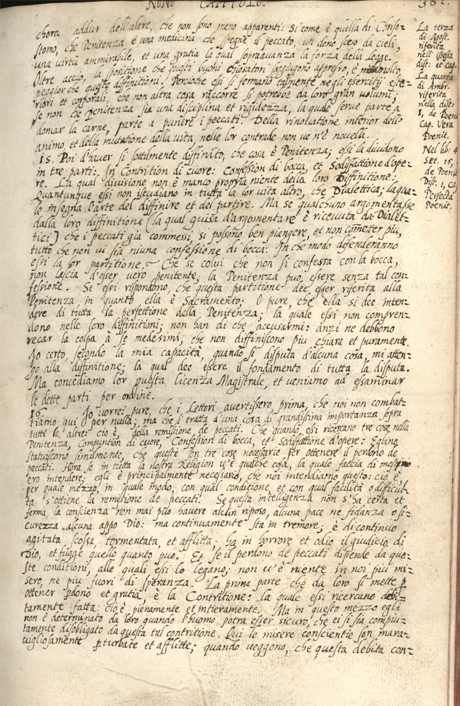 NONO CAPITOLO. 381.
chora addur dell'altre, che non sono meno apparenti: Si come è quella di Chriso-
stomo, che Penitenza è una medicina che spegne il peccato, un dono sceso da cieli,
una virtù ammirabile, et una gratia la qual sopravanza la forza della legge.
Oltre acciò, la spositione che questi buoni
peggior che queste diffinitioni. Percioche essi son talmente fermati negli esercitij este-
riori et corporali, che non altra cosa raccorre si potrebbe da lor gran volumi,
se non che penitenza sia una disciplina et rigidezza, la quale serve parte à
domar la carne, parte a punire i peccati. Della rinovatione interior dello
animo, et della mutatione della vita, nelle lor contrade non ve n'è novella.
15. Poi d'haver sì sottilmente diffinito, che cosa è Penitenza; essi la dividono
in tre parti: In Contrition di cuore: Confession di bocca, et Sodisfattione d'ope-
re. La qual divisione non è manco propria niente della loro Diffinitione:
Quantunque essi non studiano in tutta la lor vita altro, che Dialettica; la qua-
le insegna l'arte del diffinire et del partire. Ma se qualcuno argumentasse
dalla loro diffinitione (la qual guisa d'argomentare è ricevuta da Dialet-
tici) che i peccati già commessi, si possono ben piangere, et non commetter piu,
tutto che non vi sia niuna confessione di bocca: In che modo difenderanno
essi la lor partitione? Che se colui che non si confessa con la bocca,
non lascia d'esser vero penitente, la Penitenza può essere senza tal con-
fessione. Se essi rispondono, che questa partitione dee esser riferita alla
Penitenza, in quanto ella è Sacramento; O pure, che ella si dee inten-
dere di tutta la perfettione della Penitenza; la quale essi non compren-
dono nelle loro diffinitioni; non han di che accusarmi: anzi ne debbono
recar la colpa à se medesimi, che non diffiniscono piu chiara et puramente.
Io certo, secondo la mia capacità, quando si disputa d'alcuna cosa, mi atten-
go alla diffinitione; la qual dee essere il fondamento di tutta la disputa.
Ma concediamo lor questa licenza Magistrale, et veniamo ad essaminar
le dette parti per ordine.
16. Io vorrei pure, che i Lettori avertissero prima, che noi non combat-
tiamo qui per nulla; ma che si tratta d'una cosa di grandissima importanza sopra
tutte le altre: ciò è, della remissione de peccati. Che quando essi ricercano tre cose nella
Penitenza, Compuntion di cuore, Confession di bocca, et Sodisfattione d'opere: Eglino
statuiscono similmente, che queste son tre cose necessarie per ottenere il perdono de
peccati. Hora se in tutta la nostra Religion v'è qualche cosa, la quale faccia di
ero intendere, egli è principalmente necessario, che noi intendiamo questo: ciò è
per quale mezzo, in qual modo, con qual conditione, et con qual facilità o difficul-
tà s'ottiene la remissione de peccati. Se questa intelligenza non s'ha certa et
ferma, la conscienza non mai può havere alcun riposo, alcuna pace ne fidanza o si-
curezza alcuna appo Dio: ma continuamente sta in tremore; è di continuo
agitata, scossa, tormentata, et afflitta; ha in horrore et odio il giudicio di
Dio, et fugge quello quanto può. Et se il perdono de peccati dipende da que-
ste conditioni, alle quali essi lo legano; non v'è niente in noi più mi-
sero, ne piu fuori di speranza. La prima parte che da loro si mette p
ottener pdono et gratia, è la Contritione: la quale essi ricercano debi-
tamente fatta: ciò è, pienamente et interamente. Ma in questo mezzo egli
non è determinato da loro quando l'huomo potrà esser sicuro, che ei si sia compiu-
tamente disobligato da questa tal contritione. Qui le misere conscientie son mara-
vigliosamente pturbate et afflitte; quando veggono, che questa debita con-
La terza
di Agost.
riferita
nella
dist. et cap.
La quarta
di Ambr.
riferita
nella dist.
1, de Poenit.
Cap. Vera
Poenit.
Nel lib. 4
Set. 15,
de Poenit.
Dist. 1, ca.
Perfecta
Poenit.